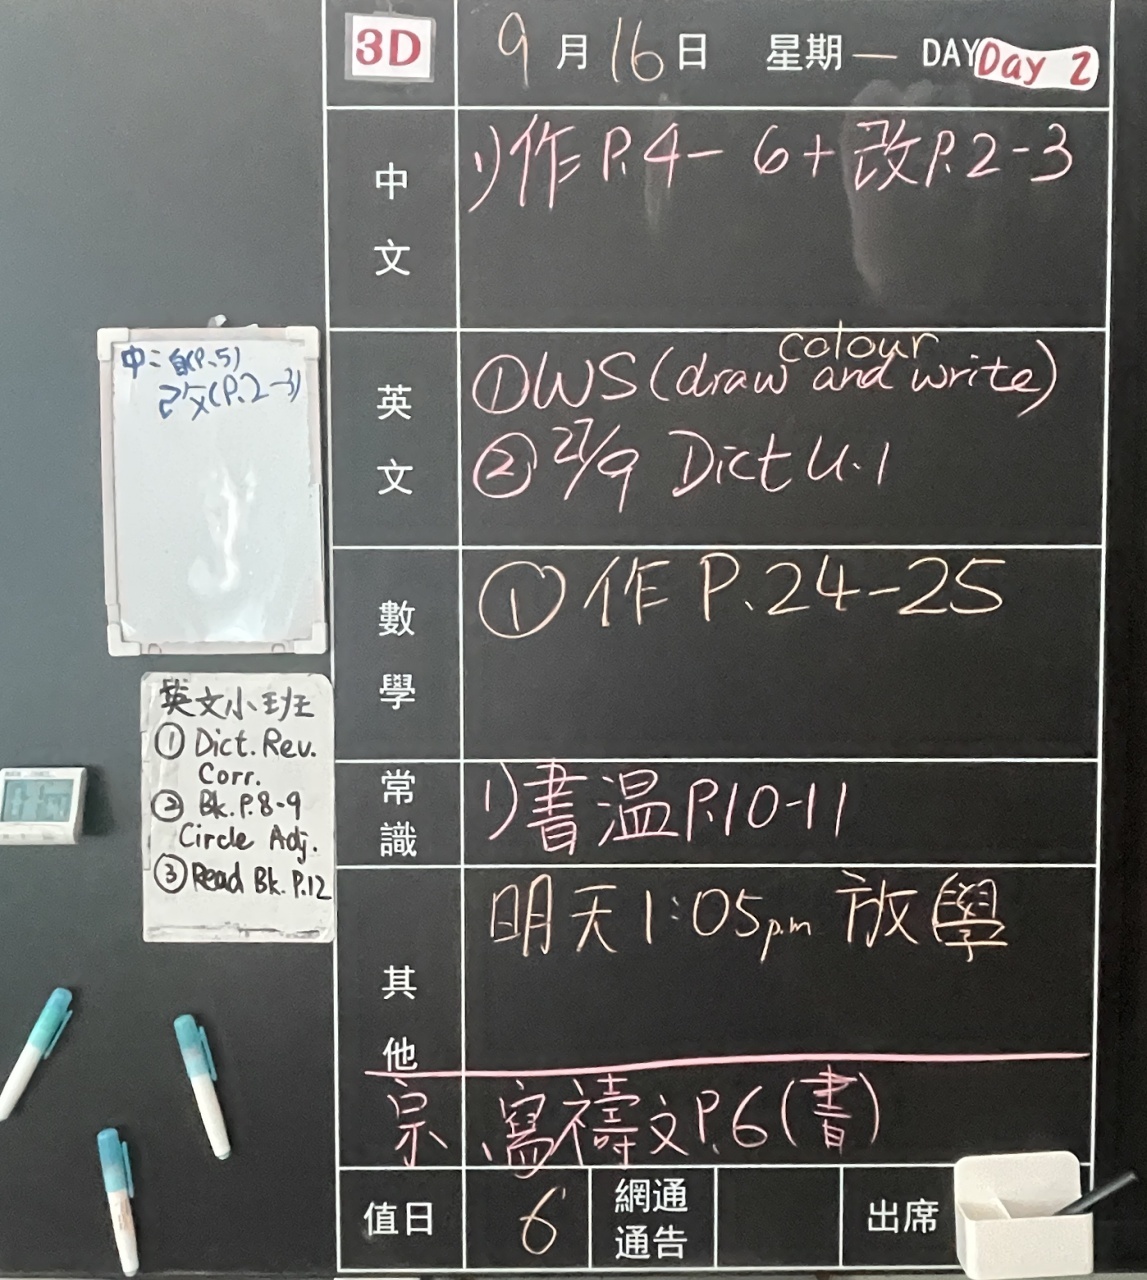 3D 9月16日 星期一 DAY Day 2
中文
1)作P.4-6+改P.2-3
英文
colour
①WS(draw and write)
②27/9 Dict U.1
數學
①作P.24-25
常識
1)書溫P.10-11
其他
明天1:05p.m 放學
宗 寫禱文P.6(書)
值日 6 網通通告 出席
中:自(P.5)
改(P.2-3)
英文小班
① Dict. Rev.
Corr.
② Bk.P.8-9
Circle Adj.
③ Read Bk. P.12